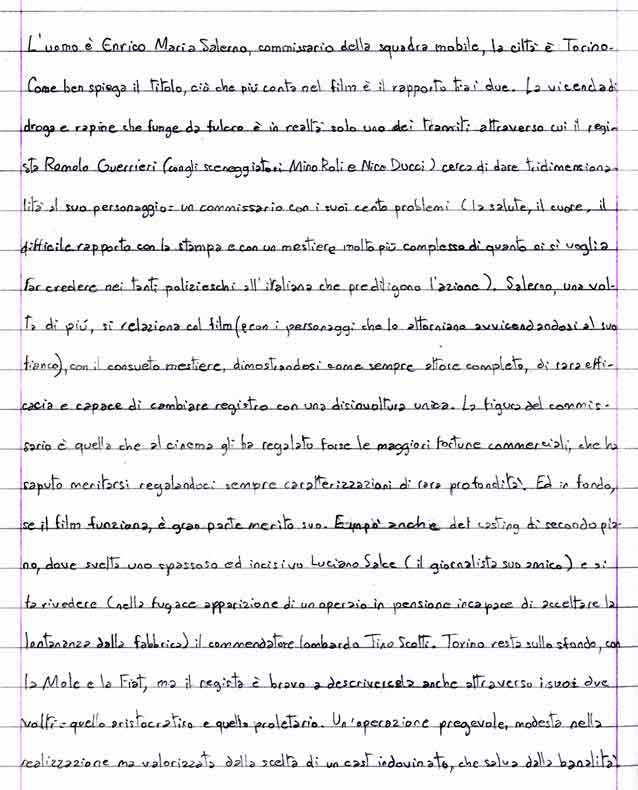 L'uomo è Enrico Maria Salerno, commissario della squadra mobile, la città è Torino.
Come ben spiega il titolo, ciò che più conta nel film è il rapporto tra i due. La vicenda di
droga e rapine che funge da fulcro è in realtà solo uno dei tramiti attraverso cui il regi-
sta Romolo Guerrieri (congli sceneggiatori Mino Roli e Nico Ducci) cerca di dare tridimensiona-
lità al suo personaggio: un commissario con i suoi cento problemi (la salute, il cuore, il
difficile rapporto con la stampa e con un mestiere molto più complesso di quanto ci si voglia
far credere nei tanti polizieschi all'italiana che prediligono l'azione). Salerno, una vol-
ta di più, si relaziona col film (e con i personaggi che lo attorniano avvicendandosi al suo
fianco), con il consueto mestiere, dimostrandosi come sempre attore completo, di rara effi-
cacia e capace di cambiare registro con una disinvoltura unica. La figura del commis-
sario è quella che al cinema gli ha regalato forse le maggiori fortune commerciali, che ha
saputo meritarsi regalandoci sempre caratterizzazioni di rara profondità. Ed in fondo,
se il film funziona, è gran parte merito suo. E un po' anche del casting di secondo pia-
no, dove svetta uno spassoso ed incisivo Luciano Salce (il giornalista suo amico) e si
fa rivedere (nella fugace apparizione di un operaio in pensione incapace di accettare la
lontananza dalla fabbrica) il commendatore lombardo Tino Scotti. Torino resta sullo sfondo, con
la Mole e la Fiat, ma il regista è bravo a descrivercela anche attraverso i suoi due
volti: quello aristocratico e quello proletario. Un'operazione pregevole, modesta nella
realizzazione ma valorizzata dalla scelta di un cast indovinato, che salva dalla banalità